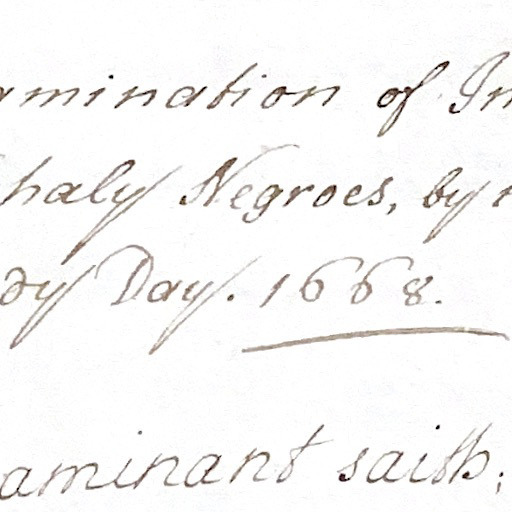 amination of In
haly Negroes, by
dy Day. 1668.
aminant saith;